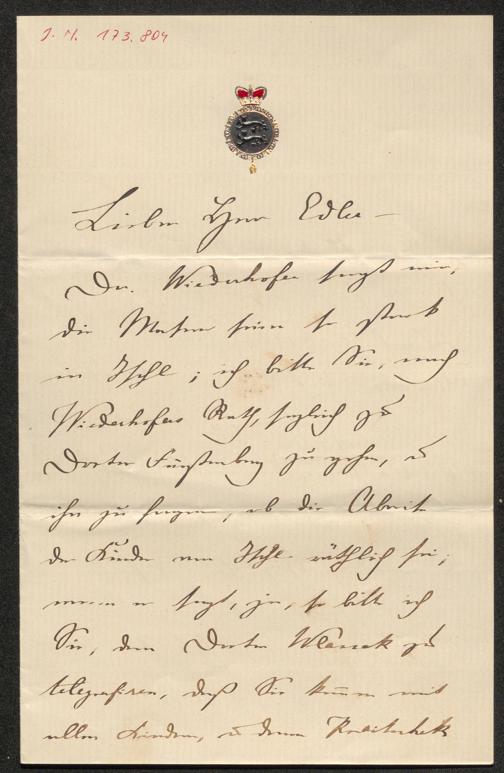 J. N. 173.804
Lieber Herr Edler –
Dr. Wiederhofer sagt mir,
die Masern seien so stark
in Ischl; ich bitte Sie, nach
Wiederhofers Rath, sogleich zu
Doctor Fürstenberg zu gehen, u
ihn zu fragen, ob die Abreise
der Kinder von Ischl räthlich sei;
wenn er sagt, ja, so bitte ich
Sie, dem Doctor Wlassak zu
telegrafiren, daß Sie kommen mit
allen Kindern, u dann